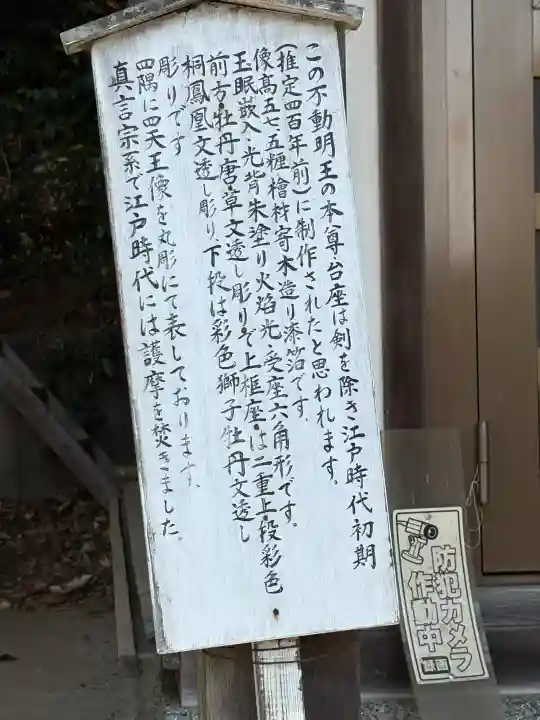 この不動明王の本尊台座は剣を除き江戸時代初期
(推定四百年前)に制作されたと思われます。
像高五七五糎檜材寄木造り漆箔です。
玉眠嵌入・光背朱塗り火焰光・受座六角形です。
前方・牡丹唐・草文透し彫りで上框座・は二重上・段彩色
桐鳳凰文透し彫り下段は彩色獅子牡丹文透し
彫りです
四隅に四天王像を丸彫にて表しております。
真言宗系で江戸時代には護摩を焚きました。
防犯カメラ
作動中
録画